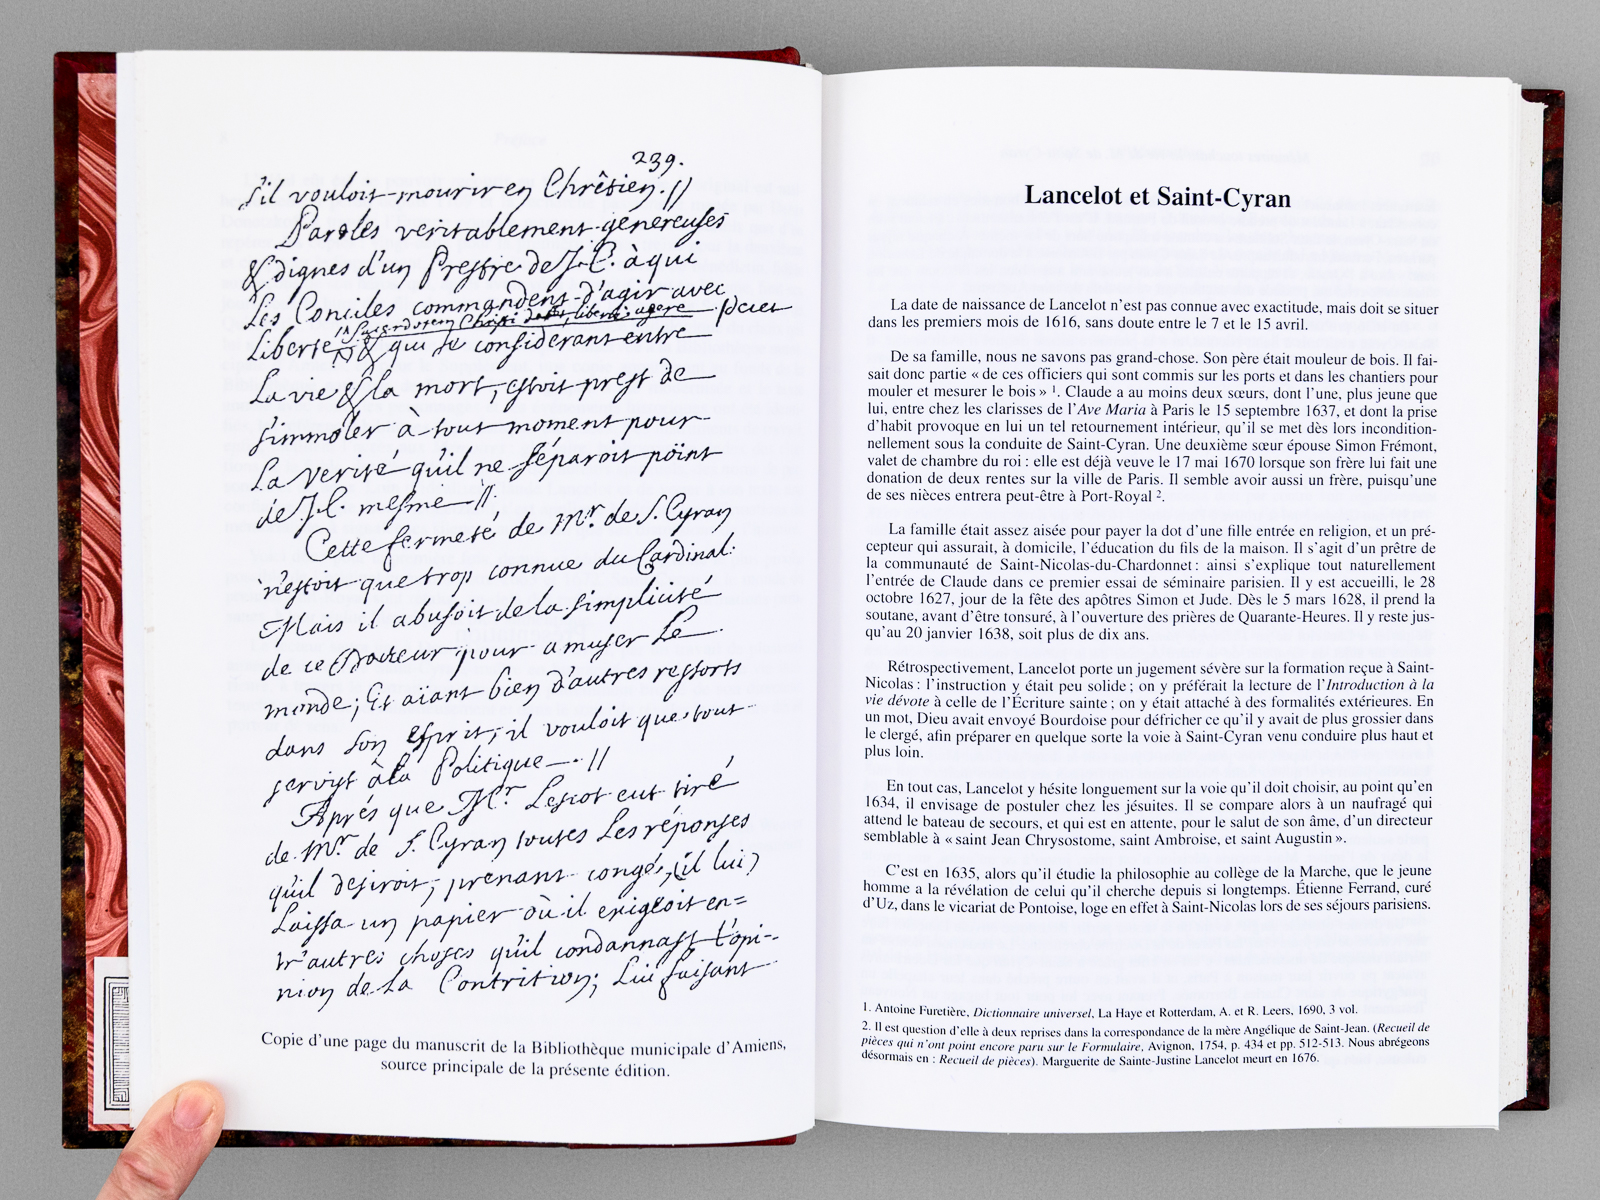 239.
s'il vouloit mourir en Chrêtien. //
Paroles veritablement genereuses
& dignes d'un Prestre de J. C. à qui
Les Conciles commandent d'agir avec
in sacerdotem Christi libere agere
Liberté & qui se considerant entre
La vie & la mort, estoit prest de
s'immoler à tout moment pour
La Verité qu'il ne séparoit point
de J. C. mesme //.
Cette fermeté de Mr. de S. Cyran
n'estoit que trop connue du Cardinal.
Mais il abusoit de la simplicité
de ce Docteur pour amuser Le
monde; Et aïant bien d'autres ressorts
dans son esprit, il vouloit que tout
servist à la Politique. //
Aprés que Mr. Lescot eut tiré
de Mr. de S. Cyran toutes Les réponses
qu'il desiroit, prenant congé, (il lui)
Laissa un papier où il exigeoit en=
tr'autres choses qu'il condannast L'opi-
nion de La Contrition; Lui faisant
Copie d'une page du manuscrit de la Bibliothèque municipale d'Amiens,
source principale de la présente édition.
Lancelot et Saint-Cyran
La date de naissance de Lancelot n'est pas connue avec exactitude, mais doit se situer
dans les premiers mois de 1616, sans doute entre le 7 et le 15 avril.
De sa famille, nous ne savons pas grand-chose. Son père était mouleur de bois. Il fai-
sait donc partie « de ces officiers qui sont commis sur les ports et dans les chantiers pour
mouler et mesurer le bois » 1. Claude a au moins deux sœurs, dont l'une, plus jeune que
lui, entre chez les clarisses de l'Ave Maria à Paris le 15 septembre 1637, et dont la prise
d'habit provoque en lui un tel retournement intérieur, qu'il se met dès lors incondition-
nellement sous la conduite de Saint-Cyran. Une deuxième sœur épouse Simon Frémont,
valet de chambre du roi : elle est déjà veuve le 17 mai 1670 lorsque son frère lui fait une
donation de deux rentes sur la ville de Paris. Il semble avoir aussi un frère, puisqu'une
de ses nièces entrera peut-être à Port-Royal 2.
La famille était assez aisée pour payer la dot d'une fille entrée en religion, et un pré-
cepteur qui assurait, à domicile, l'éducation du fils de la maison. Il s'agit d'un prêtre de
la communauté de Saint-Nicolas-du-Chardonnet : ainsi s'explique tout naturellement
l'entrée de Claude dans ce premier essai de séminaire parisien. Il y est accueilli, le 28
octobre 1627, jour de la fête des apôtres Simon et Jude. Dès le 5 mars 1628, il prend la
soutane, avant d'être tonsuré, à l'ouverture des prières de Quarante-Heures. Il y reste jus-
qu'au 20 janvier 1638, soit plus de dix ans.
Rétrospectivement, Lancelot porte un jugement sévère sur la formation reçue à Saint-
Nicolas : l'instruction y était peu solide ; on y préférait la lecture de l'Introduction à la
vie dévote à celle de l'Écriture sainte ; on y était attaché à des formalités extérieures. En
un mot, Dieu avait envoyé Bourdoise pour défricher ce qu'il y avait de plus grossier dans
le clergé, afin préparer en quelque sorte la voie à Saint-Cyran venu conduire plus haut et
plus loin.
En tout cas, Lancelot y hésite longuement sur la voie qu'il doit choisir, au point qu'en
1634, il envisage de postuler chez les jésuites. Il se compare alors à un naufragé qui
attend le bateau de secours, et qui est en attente, pour le salut de son âme, d'un directeur
semblable à « saint Jean Chrysostome, saint Ambroise, et saint Augustin ».
C'est en 1635, alors qu'il étudie la philosophie au collège de la Marche, que le jeune
homme a la révélation de celui qu'il cherche depuis si longtemps. Étienne Ferrand, curé
d'Uz, dans le vicariat de Pontoise, loge en effet à Saint-Nicolas lors de ses séjours parisiens.
1. Antoine Furetière, Dictionnaire universel, La Haye et Rotterdam, A. et R. Leers, 1690, 3 vol.
2. Il est question d'elle à deux reprises dans la correspondance de la mère Angélique de Saint-Jean. (Recueil de
pièces qui n'ont point encore paru sur le Formulaire, Avignon, 1754, p. 434 et pp. 512-513. Nous abrégeons
désormais en : Recueil de pièces). Marguerite de Sainte-Justine Lancelot meurt en 1676.